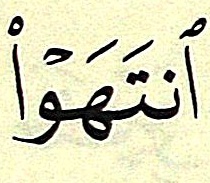 ٱنتَهَوۡاْ